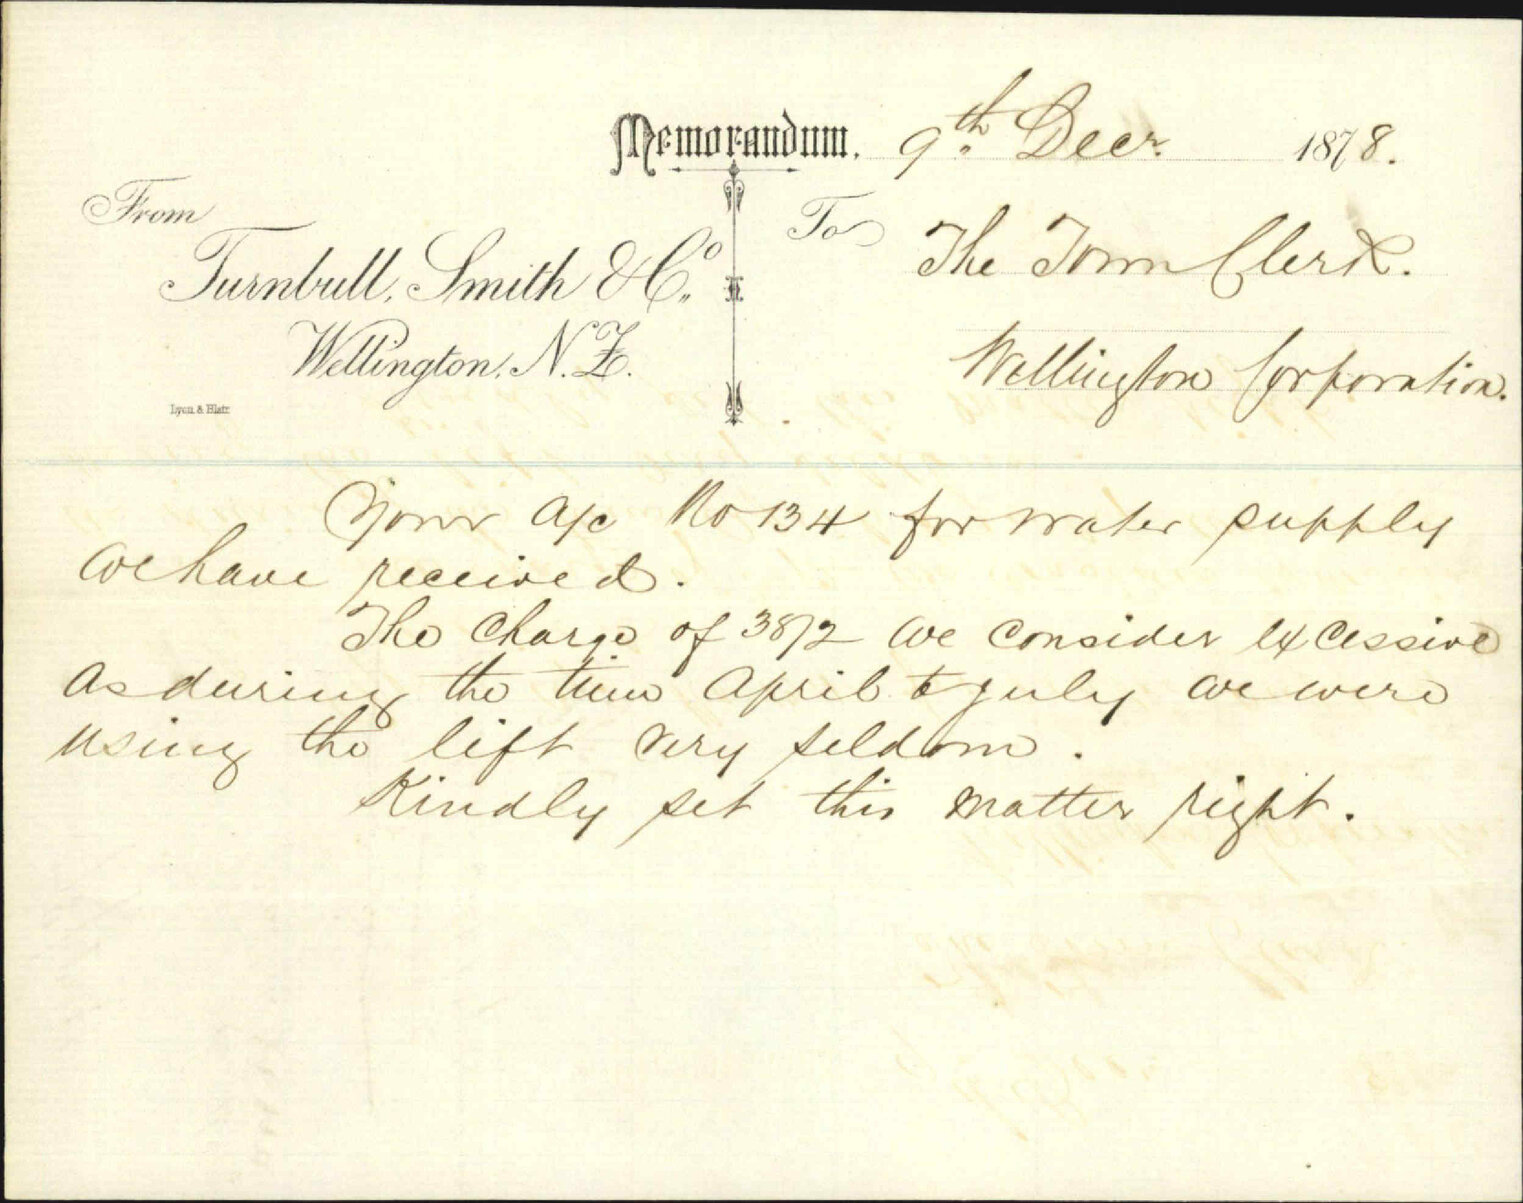 Memorandum. 9th Decr. 1878.
From
Turnbull, Smith & Co.,
Wellington, N.Z.
Lyon & Blair
To
The Town Clerk.
Wellington Corporation.
Your a/c No 134 for water supply
we have received.
The charge of 38/2 we consider excessive
as during the time April to July we were
using the lift very seldom.
Kindly set this matter right.